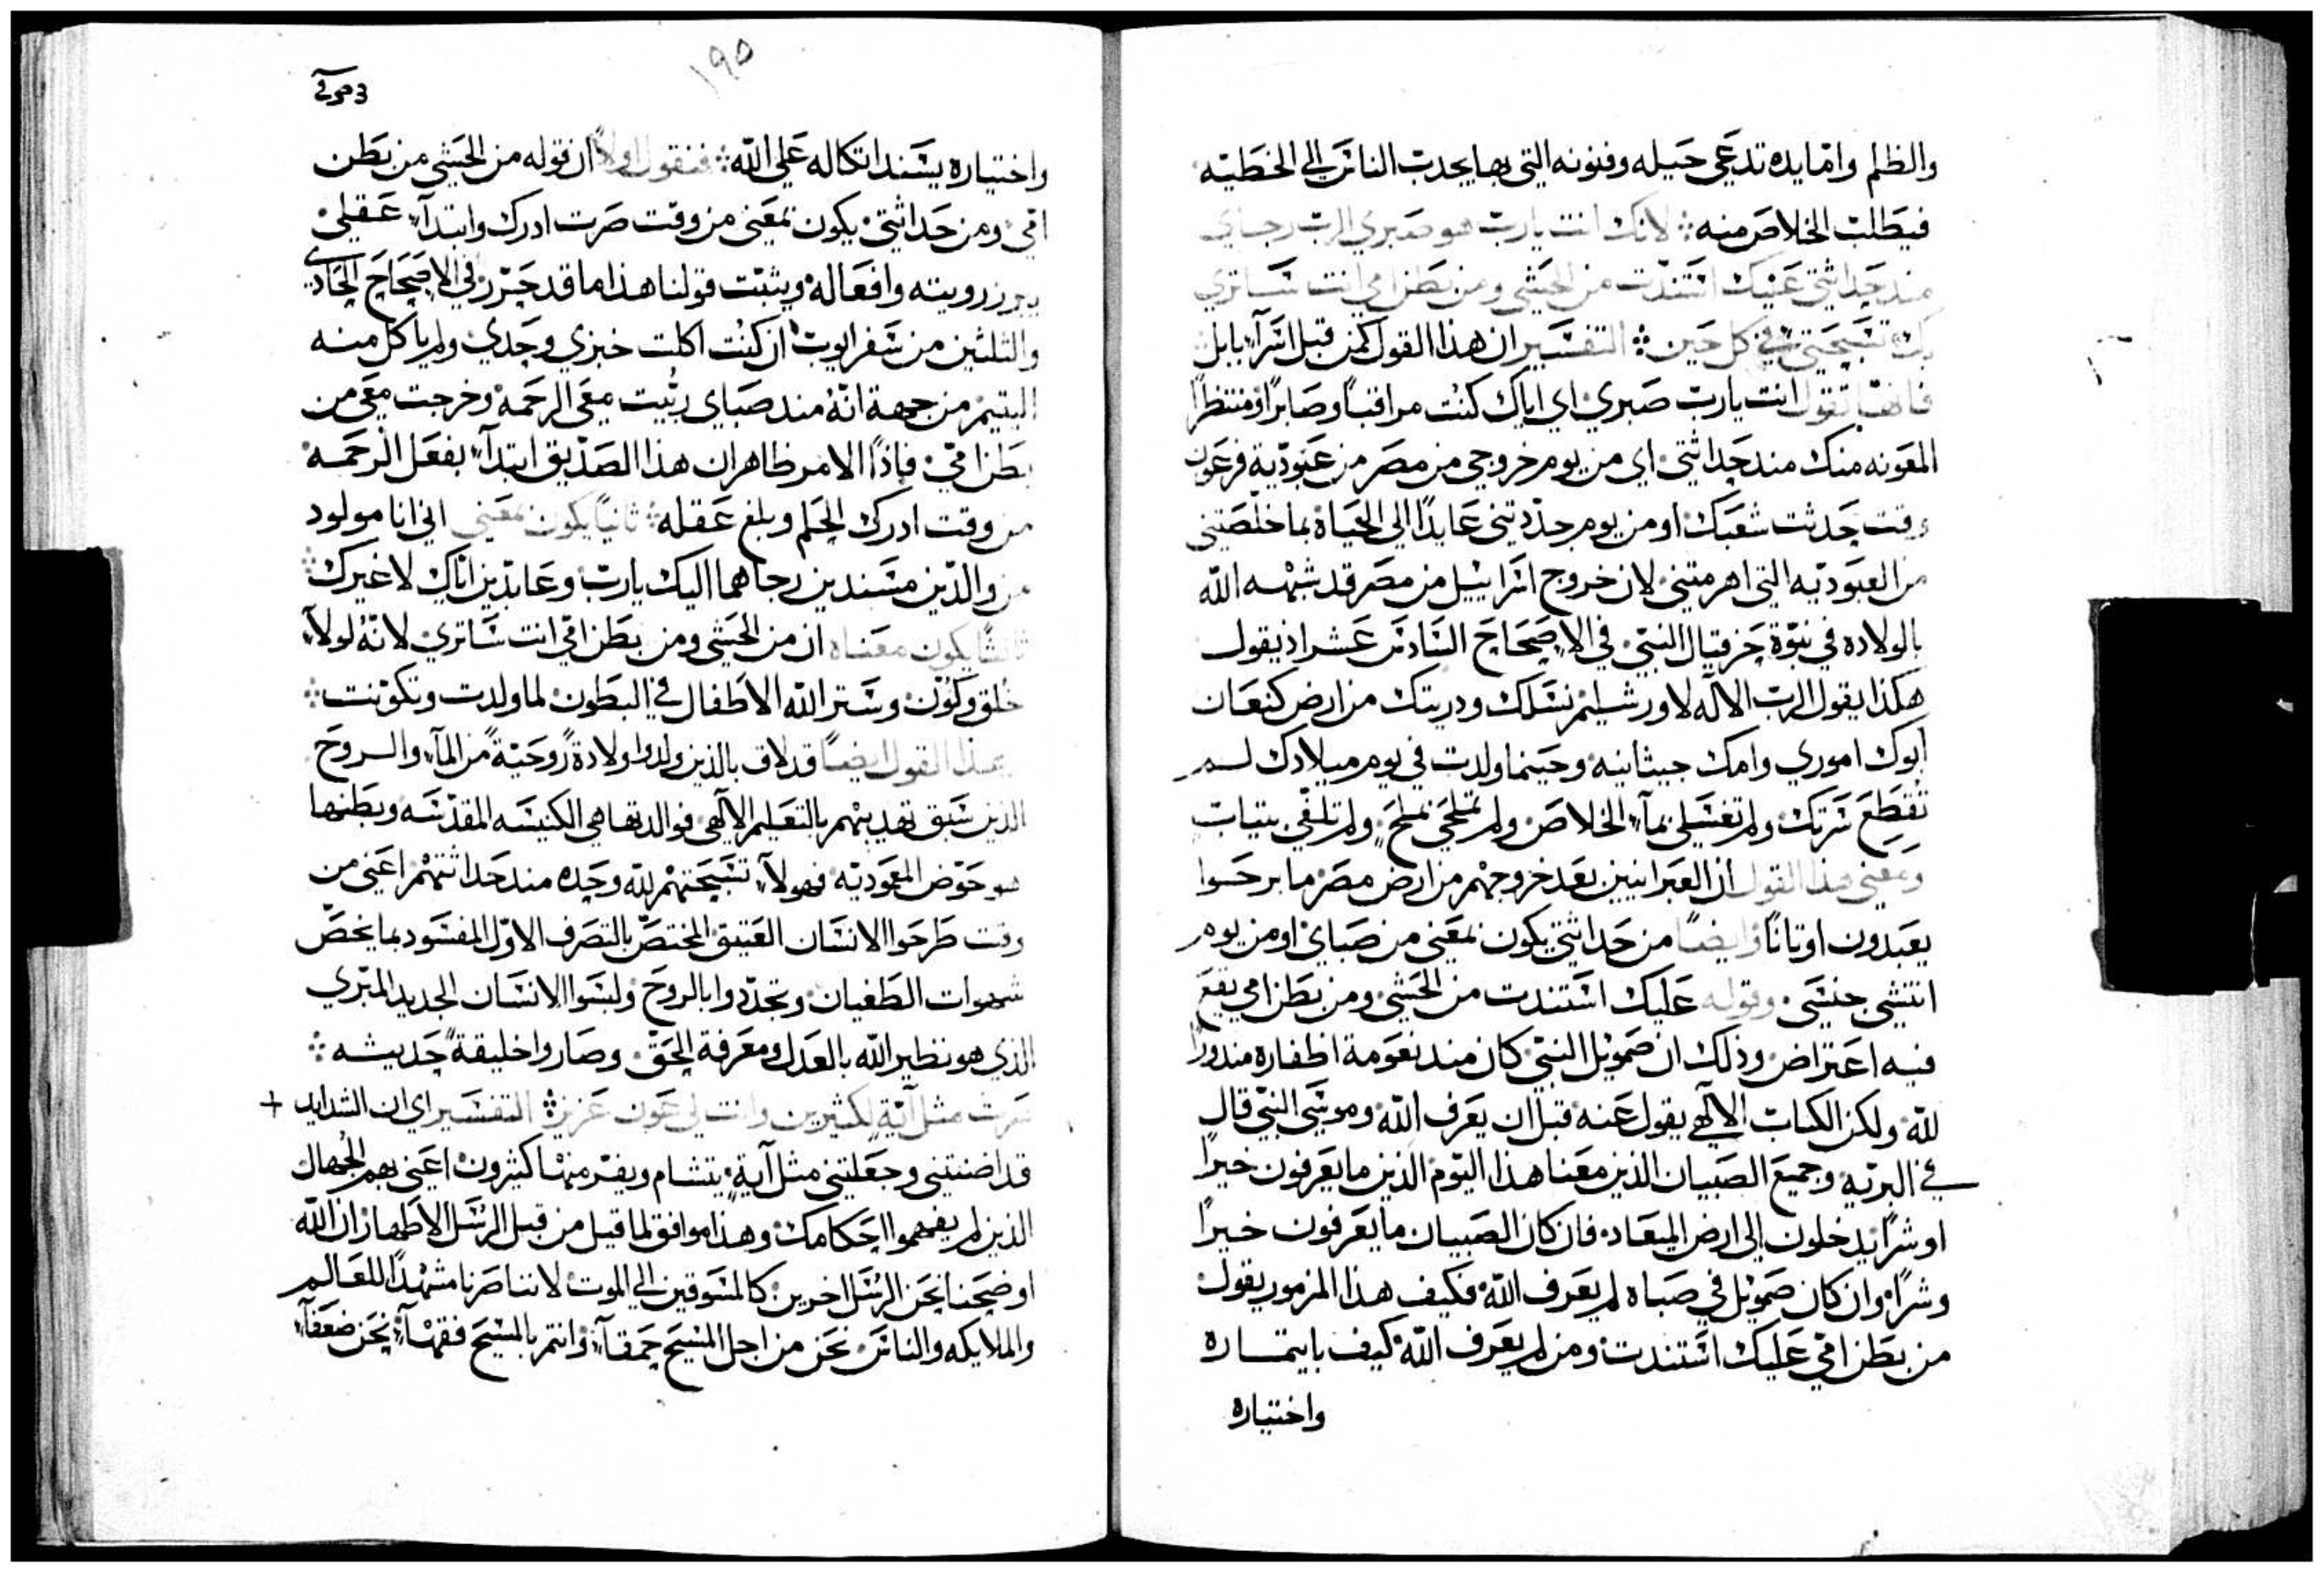 والظلم وامّا يده تدعي حيله وفنونه التي بها يجدب الناس الي الخطيّه
فيطلب الخلاص منه ؞ لانك انت يارب هو صبري الرب رجاي
مند حداثتي عليك استندت من الحشي ومن بطن امي انت ساتري
بك تسبحتي في كل حين ؞ التفسير ان هذا القول كمن قبل اسرآء بابل
فانها تقول انت يارب صبري اي اياك كنت مراقباً وصابراً ومنتظراً
المعونه منك مند حداثتي اي من يوم خروجي من مصر من عبوديّة فرعون
وقت حدثت شعبك او من يوم جدّدتني عايدًا الى الحياة بما خلّصتني
من العبوديّه التي اهرمتني لان خروج اسراييل من مصر قد شبهه الله
بالولاده في نبوّة حزقيال النبيّ في الاصحاح السادس عشر اذ يقول
هكذا يقول الرب الاله لاورشليم نسلك ودريتك من ارض كنعان
ابوك اموري وامك حيثانيه وحينما ولدت في يوم ميلادك لم
تقطع سرتك ولم تغسلي بمآء الخلاص ولم تملحي بملح ولم تلفّي بتياب
ومعني هذا القول ان العبرانيين بعد خروجهم من ارض مصر ما برحوا
يعبدون اوتاناً وايضاً من حداثتي يكون بمعني من صباي او من يوم
انتشي جنسي وقوله عليك استندت من الحشي ومن بطن امي يقع
فيه اعتراض وذلك ان صموئل النبي كان مند نعومة اظفاره مندوراً
للّه ولكن الكتاب الالهي يقول عنه قبل ان يعرف اللّه وموسي النبي قال
في البريّه وجميع الصبيان الذين معنا هذا اليوم الذين ما يعرفون خيراً
او شراً يدخلون الى ارض الميعاد فان كان الصبيان ما يعرفون خيراً
وشراً وان كان صموئل في صباه لم يعرف اللّه فكيف هذا المزمور يقول
من بطن امّي عليك استندت ومن لم يعرف اللّه كيف بايتماره
واختياره
١٩٥
واختياره يسند اتكاله علي اللّه ؞ فنقول اولاً ان قوله من الحشي من بطن
امّي ومن حداثتي يكون بمعني من وقت صرت ادرك وابتدآء عقلي
يبرز رويته وافعاله ويثبّت قولنا هذا ما قد حرّر في الاصحاح الحادي
والثلثين من سفر ايوب ان كنت اكلت خبزي وحدي ولم ياكل منه
اليتيم من جهة انّه مند صباي ربّيت معي الرحمة وخرجت معي من
بطن امّي فاذاً الامر ظاهر ان هذا الصدّيق ابتدآء بفعل الرحمه
من وقت ادرك الحلم وبلغ عقله ؞ ثانياً يكون بمعني اني انا مولود
من والدّين مسندين رجاهما اليك يارب وعابدين اياك لا غيرك ؞
ثالثاً يكون معناه ان من الحشي ومن بطن امّي انت ساتري لانّه لولا
خلق وكوّن وستر اللّه الاطفال في البطون لما ولدت وتكوّنت ؞
هذا القول ايضاً قد لاق بالذين ولدوا ولادة روحيّة من المآء والروح
الذين سبق تهديبهم بالتعليم الالهي فوالدتهم هي الكنيسه المقدّسه وبطنها
هو حوض المعوديّه فهولآء تسبحتهم للّه وحده مند حداثتهم اعني من
وقت طرحوا الانسان العتيق المختصّ بالتصرف الاوّل المفسود بما يخصّ
شهوات الطغيان وتجدّدوا بالروح ولبسوا الانسان الجديد المبري
الذي هو نظير اللّه بالعدل ومعرفة الحق وصاروا خليقة حديثه ؞
صرت مثل آية لكثيرين وانت لي عون عزيز ؞ التفسير اي ان الشدايد +
قد اضنتني وجعلتني مثل آية يتشام ويفر منها كثيرون اعني بهم الجهال
الذين لم يفهموا احكامك وهذا موافق لما قيل من قبل الرسل الاطهار ان اللّه
اوضحنا نحن الرسل اخرين كالمسوقين الي الموت لاننا صرنا مشهداً للعالم
والملايكه والناس نحن من اجل المسيح حمقآء وانتم بالمسيح فقهآء نحن ضعفآء